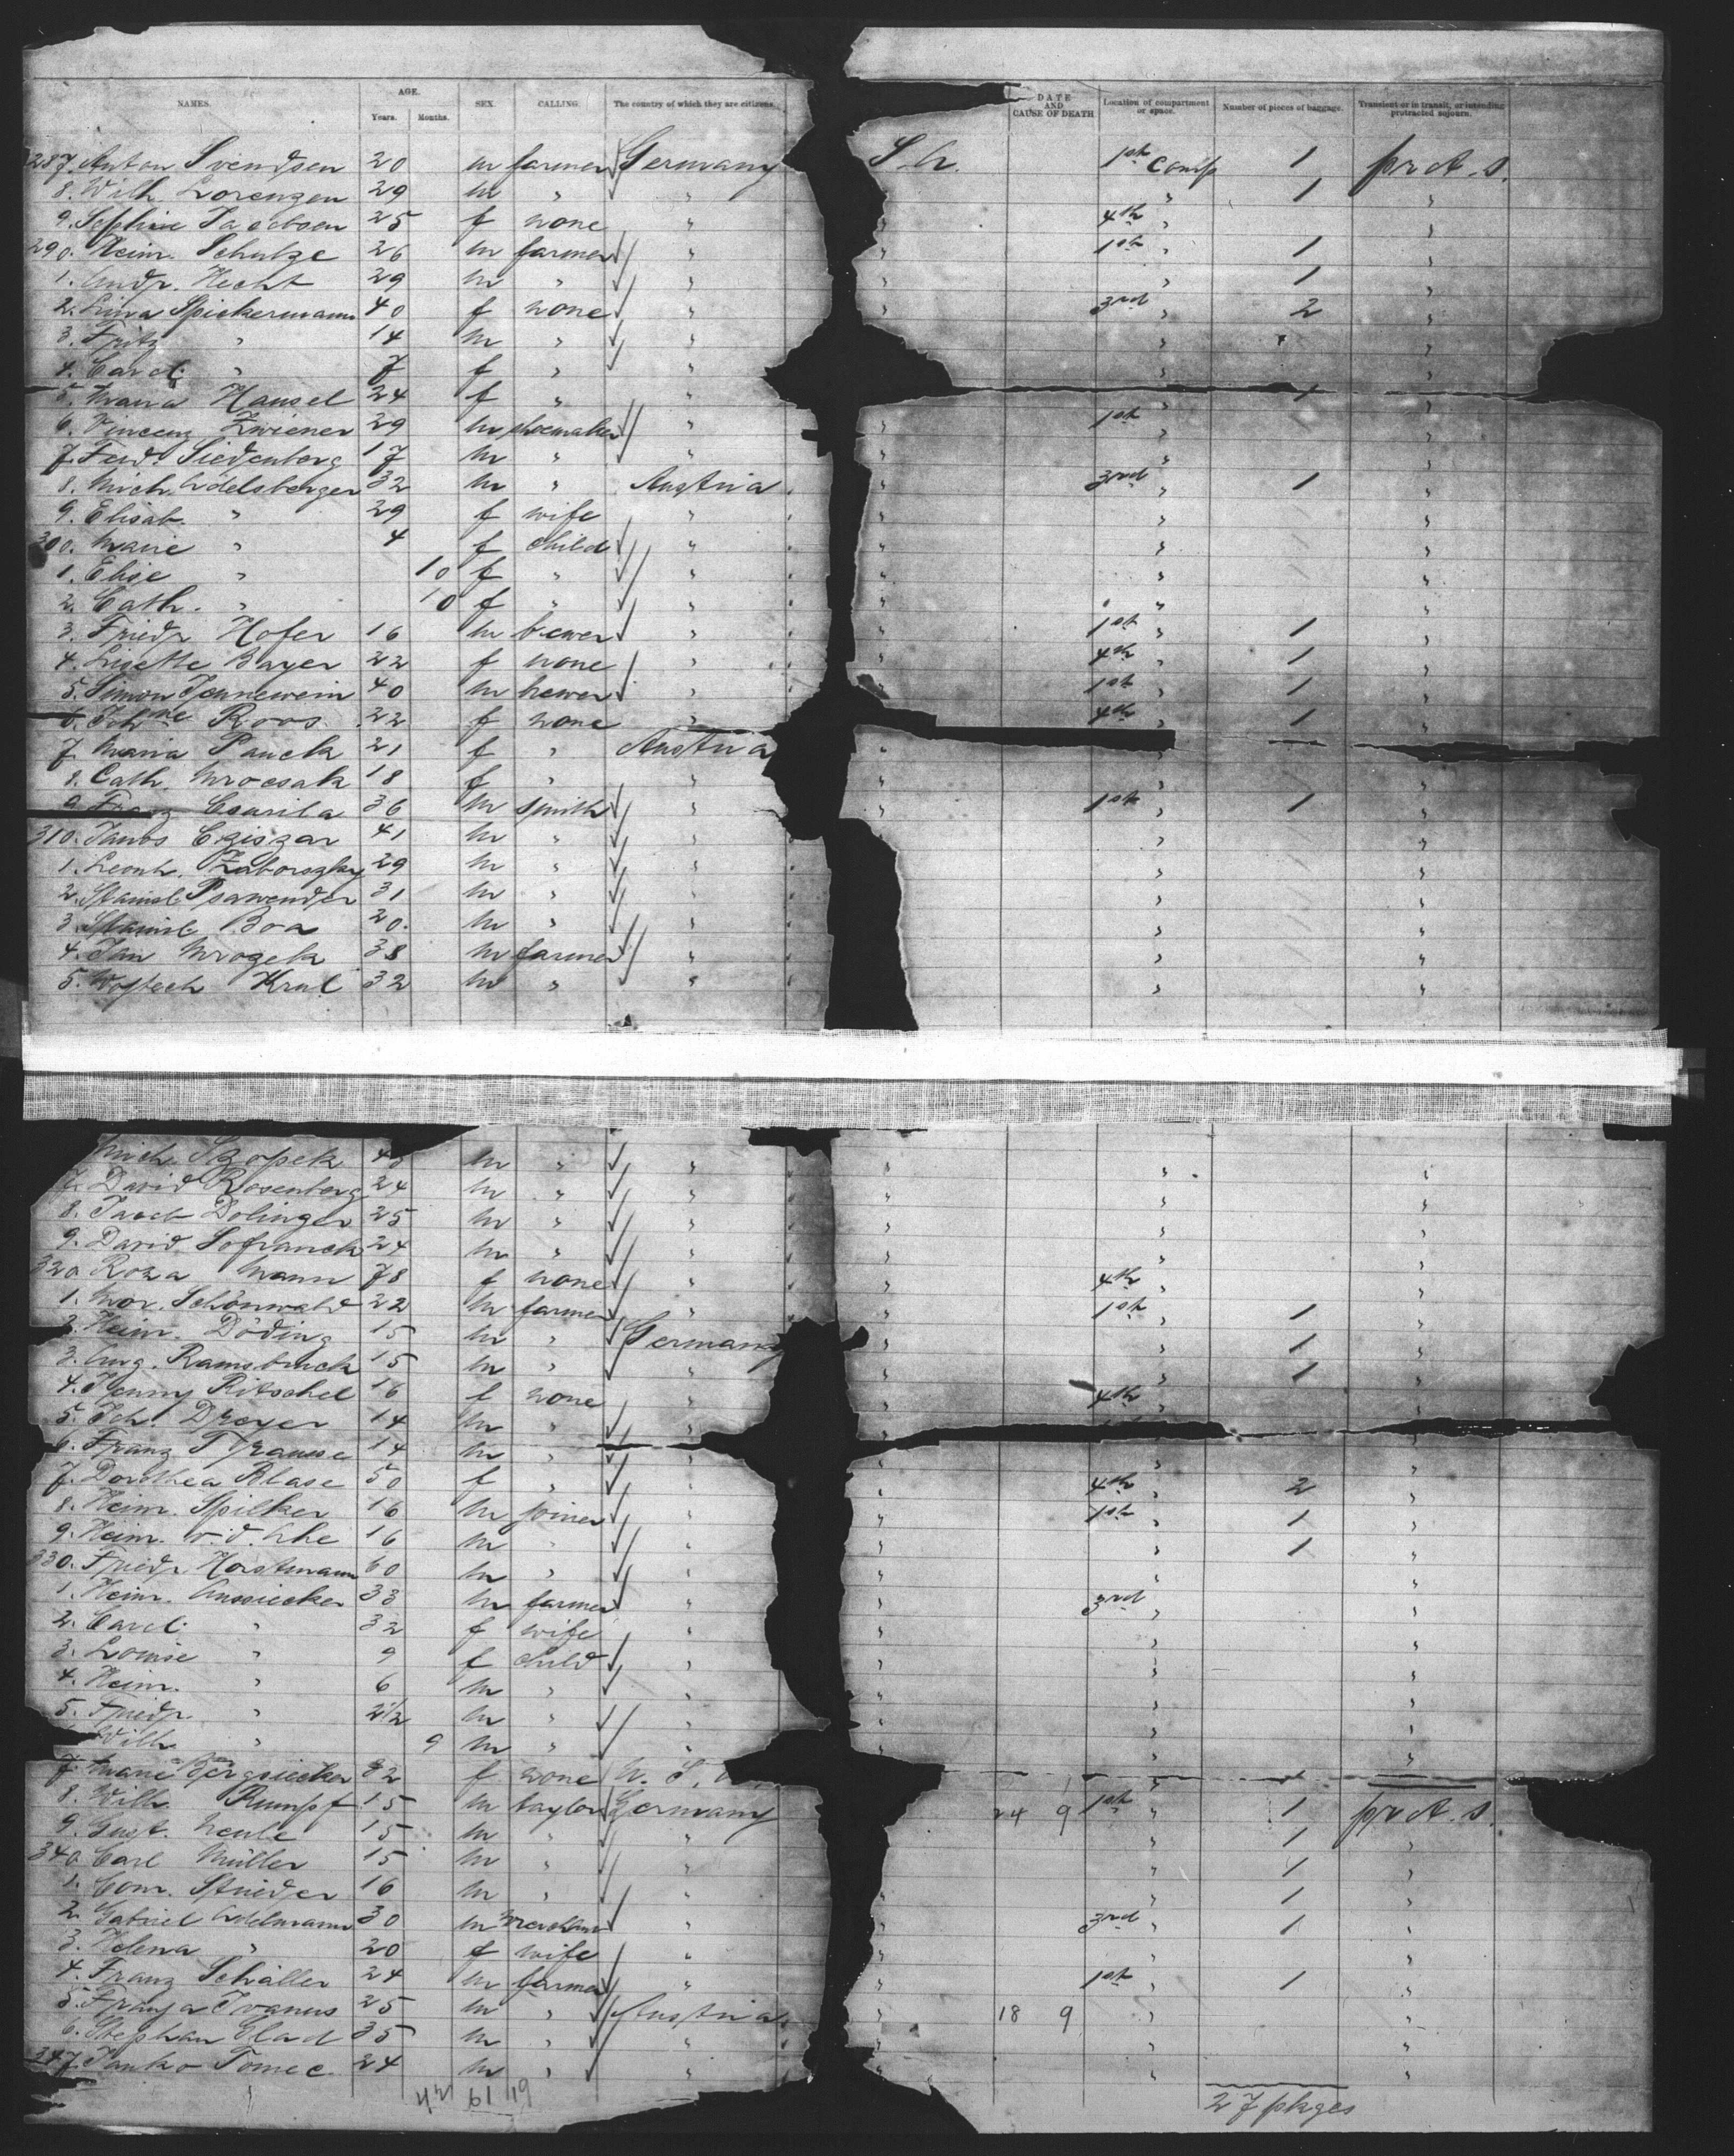 NAMES. AGE. Years. Months. SEX. CALLING. The country of which they are citizens. DATE AND CAUSE OF DEATH Location of compartment or space. Number of pieces of baggage. Transient or in transit, or intending protracted sojourn.
287. Anton Svendsen 20 m farmer Germany 1st comp 1 prot. s.
8. Wilh. Lorenzen 29 m " " " " 1 "
9. Jacobsen 25 f none " " 4th " "
290. Heinr. Schulze 26 m farmer " " 1st " 1 "
1. Andr. Hecht 29 m " " " " 1 "
2. Lina Spiekermann 40 f none " " 3rd " 2 "
3. Fritz " 14 m " " " "
4. Carol. " 7 f " " "
5. Maria Hansel 24 f " " 1 "
6. Vincenz Zwiener 29 m shoemaker " " 1st " "
7. Ferd. Siedenberg 17 m " " " " "
8. Mich. Adelsberger 32 m " Austria " 3rd " 1 "
9. Elisab. " 29 f wife " " " "
300. Marie " 4 f child " " " "
1. Elise " 10 f " " " " "
2. Cath. " 10 f " " " " "
3. Friedr Hofer 16 m " " 1st " 1 "
4. Lisette Bayer 22 f none " " 4th " 1 "
5. Simon Jennewein 40 m " " 1st " 1 "
6. Joh ne Roos 22 f none " " 4th " 1 "
7. Maria Panek 21 f " Austria "
8. Cath. Mrocsak 18 f " " " " "
9. Franz Csurila 36 m smith " " 1st " 1 "
310. Janos Cziszar 41 m " " " "
1. Leonh. Zaborszky 29 m " " " "
2. Stanisl. Psawender 31 m " " " "
3. Stanisl. Boa 20. m " " " "
4. Jan Mrozek 38 m farmer " " "
5. Wojtech Krul 32 m " " " "
Mich. Szopek m " " " " "
7. David Rosenberg 24 m " " " " "
8. Jacob Dolinger 25 m " " " " "
9. David Sofranek 24 m " " " " "
320 Roza Mann 78 f none " " 4th " "
1. Mor. Schönwald 22 m farmer " " 1st " 1 "
2. Heinr. Döding 15 m " Germany " " 1 "
3. Aug. Ramsbruch 15 m " " " " 1 "
4. Jenny Ritschel 16 f none " " 4th " "
5. Joh. Dreyer 14 m " " "
6. Franz 14 m " " " " "
7. Dorothea Blase 50 f " " " 4th " 2 "
8. Heinr. Spilker 16 m joiner " " 1st " 1 "
9. Heinr. v. d. Ahe 16 m " " " " 1 "
330. Friedr Horstmann 60 m " " " " "
1. Heinr. Aussiecker 33 m farmer " " 3rd " "
2. Carol. " 32 f wife " " " "
3. Louise " 9 f child " " " "
4. Heinr. " 6 m " " " " "
5. Friedr. " 2 1/2 m " " " " "
Wilh. " 9 m " " " "
7. Marie Bergsiecker 32 f none U. S.
8. Wilh. Rumpf 15 m taylor Germany 24 9 1st " 1 prot. s.
9. Gust. Meule 15 m " " " " 1 "
340 Carl Müller 15 m " " " " 1 "
1. Conr. Strieder 16 m " " " " 1 "
2. Gabriel Adelmann 30 m merchant " " 3rd " 1 "
3. Helena " 20 f wife " " " "
4. Franz Schäller 24 m farmer " " 1st " 1 "
5. Franja Ivanus 25 m " Austria " 18 9 " "
6. Stephan Glad 35 m " " " " "
347. Janko Tomec. 24 m " " " " "
61 19
27 pkges